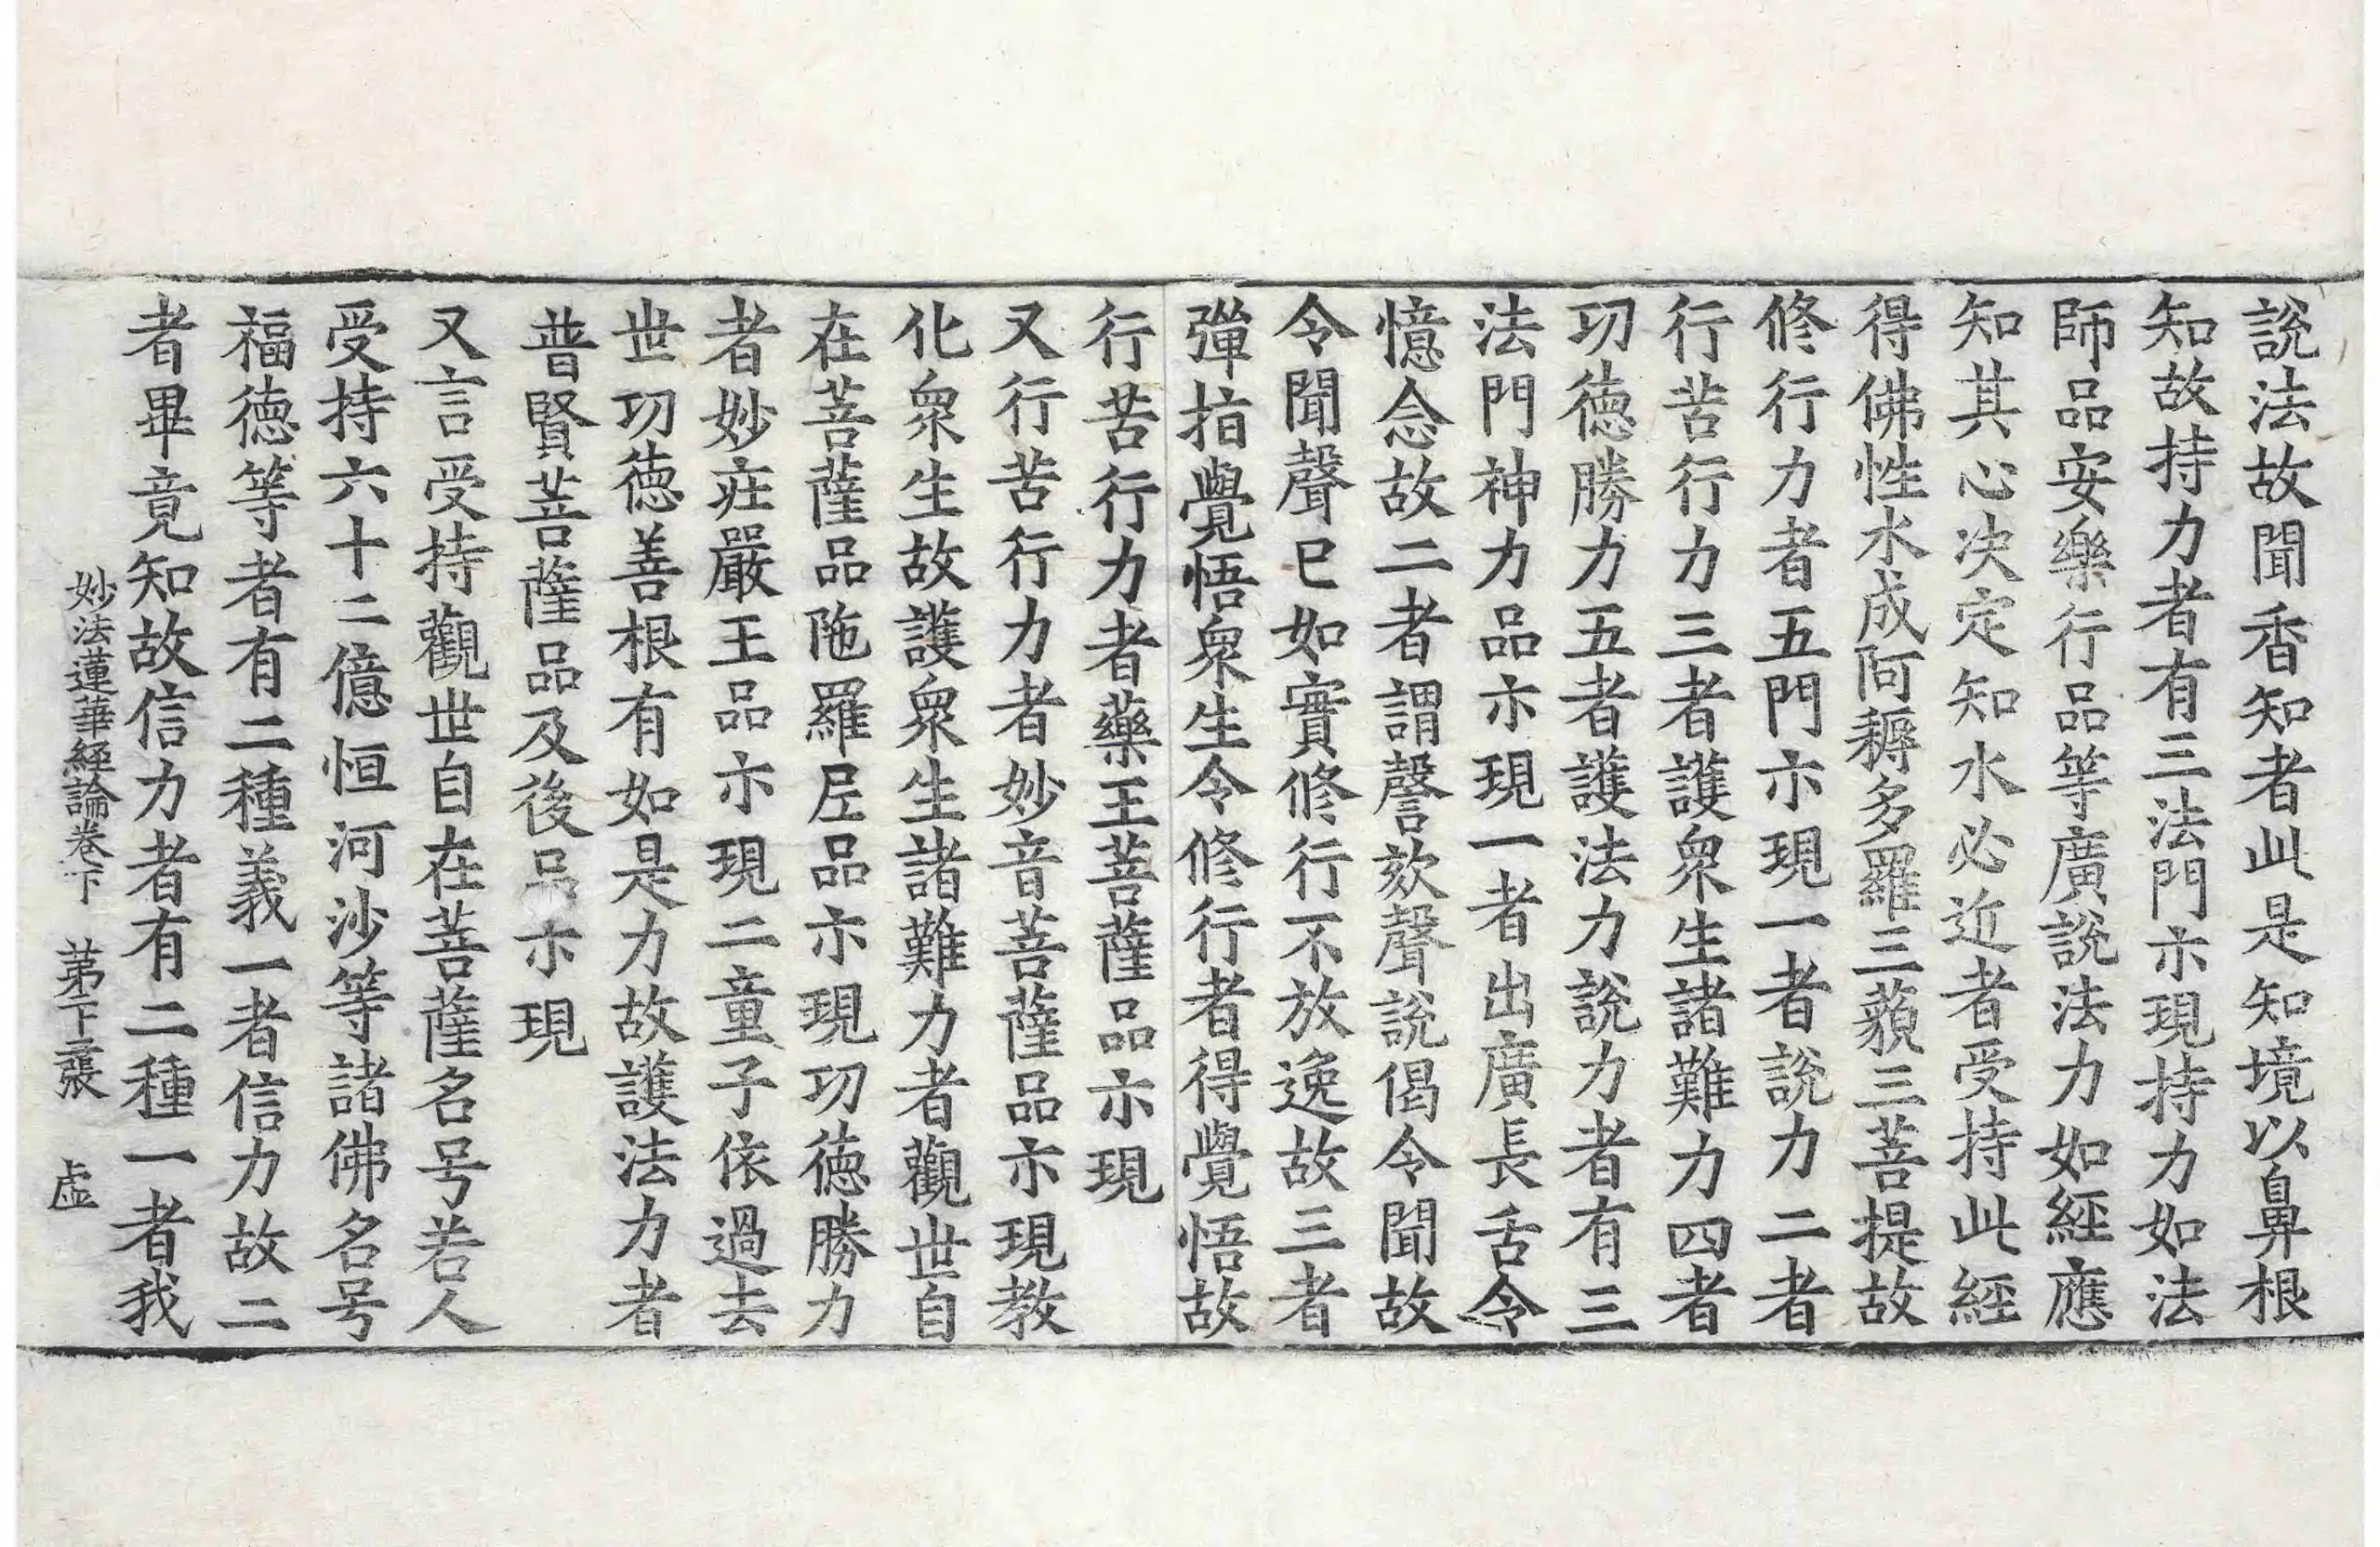 說法故聞香知者此是知境以鼻根
知故持力者有三法門示現持力如法
師品安樂行品等廣說法力如經應
知其心決定知水必近者受持此經
得佛性水成阿耨多羅三藐三菩提故
修行力者五門示現一者說力二者
行苦行力三者護衆生諸難力四者
功德勝力五者護法力說力者有三
法門神力品示現一者出廣長舌令
憶念故二者謂謦欬聲說偈令聞故
令聞聲已如實修行不放逸故三者
彈指覺悟衆生令修行者得覺悟故
行苦行力者藥王菩薩品示現
又行苦行力者妙音菩薩品示現教
化衆生故護衆生諸難力者觀世自
在菩薩品陁羅尼品示現功德勝力
者妙莊嚴王品示現二童子依過去
世功德善根有如是力故護法力者
普賢菩薩品及後品示現
又言受持觀世自在菩薩名号若人
受持六十二億恒河沙等諸佛名号
福德等者有二種義一者信力故二
者畢竟知故信力者有二種一者我
妙法蓮華經論卷下 第十二張 虛